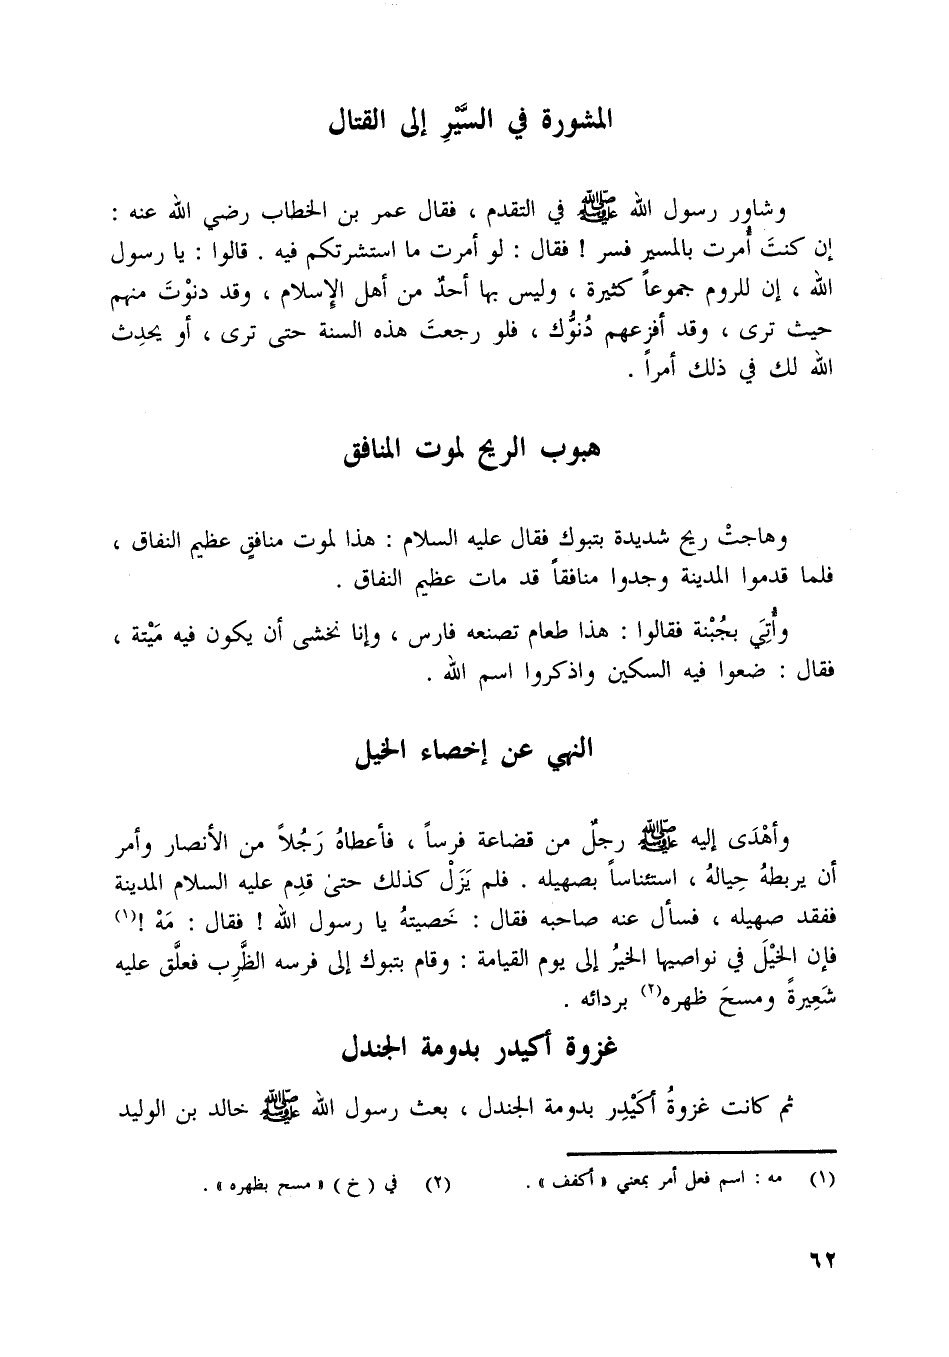 المشورة في السَّيْرِ إلى القتال
وشاور رسول الله ﷺ في التقدم ، فقال عمر بن الخطاب رضي الله عنه :
إن كنتَ أُمرت بالمسير فسر ! فقال : لو أمرت ما استشرتكم فيه . قالوا : يا رسول
الله ، إن للروم جموعاً كثيرة ، وليس بها أحدٌ من أهل الإسلام ، وقد دنوْتَ منهم
حيث ترى ، وقد أفزعهم دُنوُّك ، فلو رجعتَ هذه السنة حتى ترى ، أو يحدِث
الله لك في ذلك أمراً .
هبوب الريح لموت المنافق
وهاجتْ ريح شديدة بتبوك فقال عليه السلام : هذا لموت منافقٍ عظيم النفاق ،
فلما قدموا المدينة وجدوا منافقاً قد مات عظيم النفاق .
وأُتِيَ بجُبْنة فقالوا : هذا طعام تصنعه فارس ، وإنا نخشى أن يكون فيه مَيْتة ،
فقال : ضعوا فيه السكين واذكروا اسم الله .
النهي عن إخصاء الخيل
وأهْدَى إليه ﷺ رجلٌ من قضاعة فرساً ، فأعطاهُ رَجُلاً من الأنصار وأمر
أن يربطهُ حِيالهُ ، استئناساً بصهيله . فلم يَزَلْ كذلك حتىٰ قدِم عليه السلام المدينة
ففقد صهيله ، فسأل عنه صاحبه فقال : خَصيتهُ يا رسول الله ! فقال : مَهْ !(١)
فإن الخيْلَ في نواصيها الخيرُ إلى يوم القيامة : وقام بتبوك إلى فرسه الظَّرِب فعلَّق عليه
شَعِيرةً ومسحَ ظهره(٢) بردائه .
غزوة أكيدر بدومة الجندل
ثم كانت غزوةُ أُكَيْدِر بدومة الجندل ، بعث رسول الله ﷺ خالد بن الوليد
(١) مه : اسم فعل أمر بمعني « أكفف » . (٢) في ( خ ) « مسح بظهره » .
٦٢